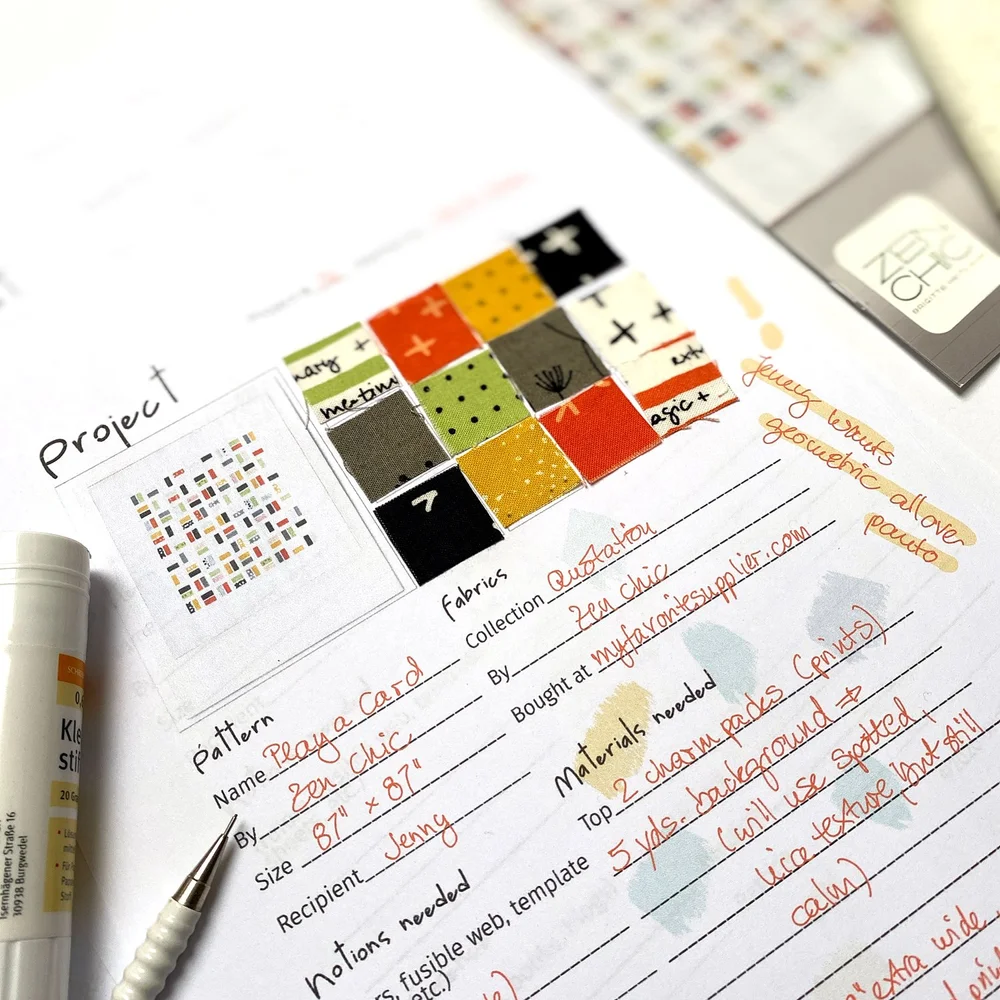 ZEN
CHIC
project
mary +
+
agic +
Jenny wants
geometric allover
panto
fabrics
Collection Quotation
By Zen Chic
Bought at myfavoritesupplier.com
pattern
Name Play a Card
By Zen Chic
Size 87" x 87"
Recipient Jenny
Materials needed
Top 2 charm packs (prints)
5 yds. background →
(will use spotted,
nice texture but still
calm)
notions needed
fusible web, template
etc.)
extra wide
Kle
sti
20 Gr
Isernhägener Straße 16
30938 Burgwedel